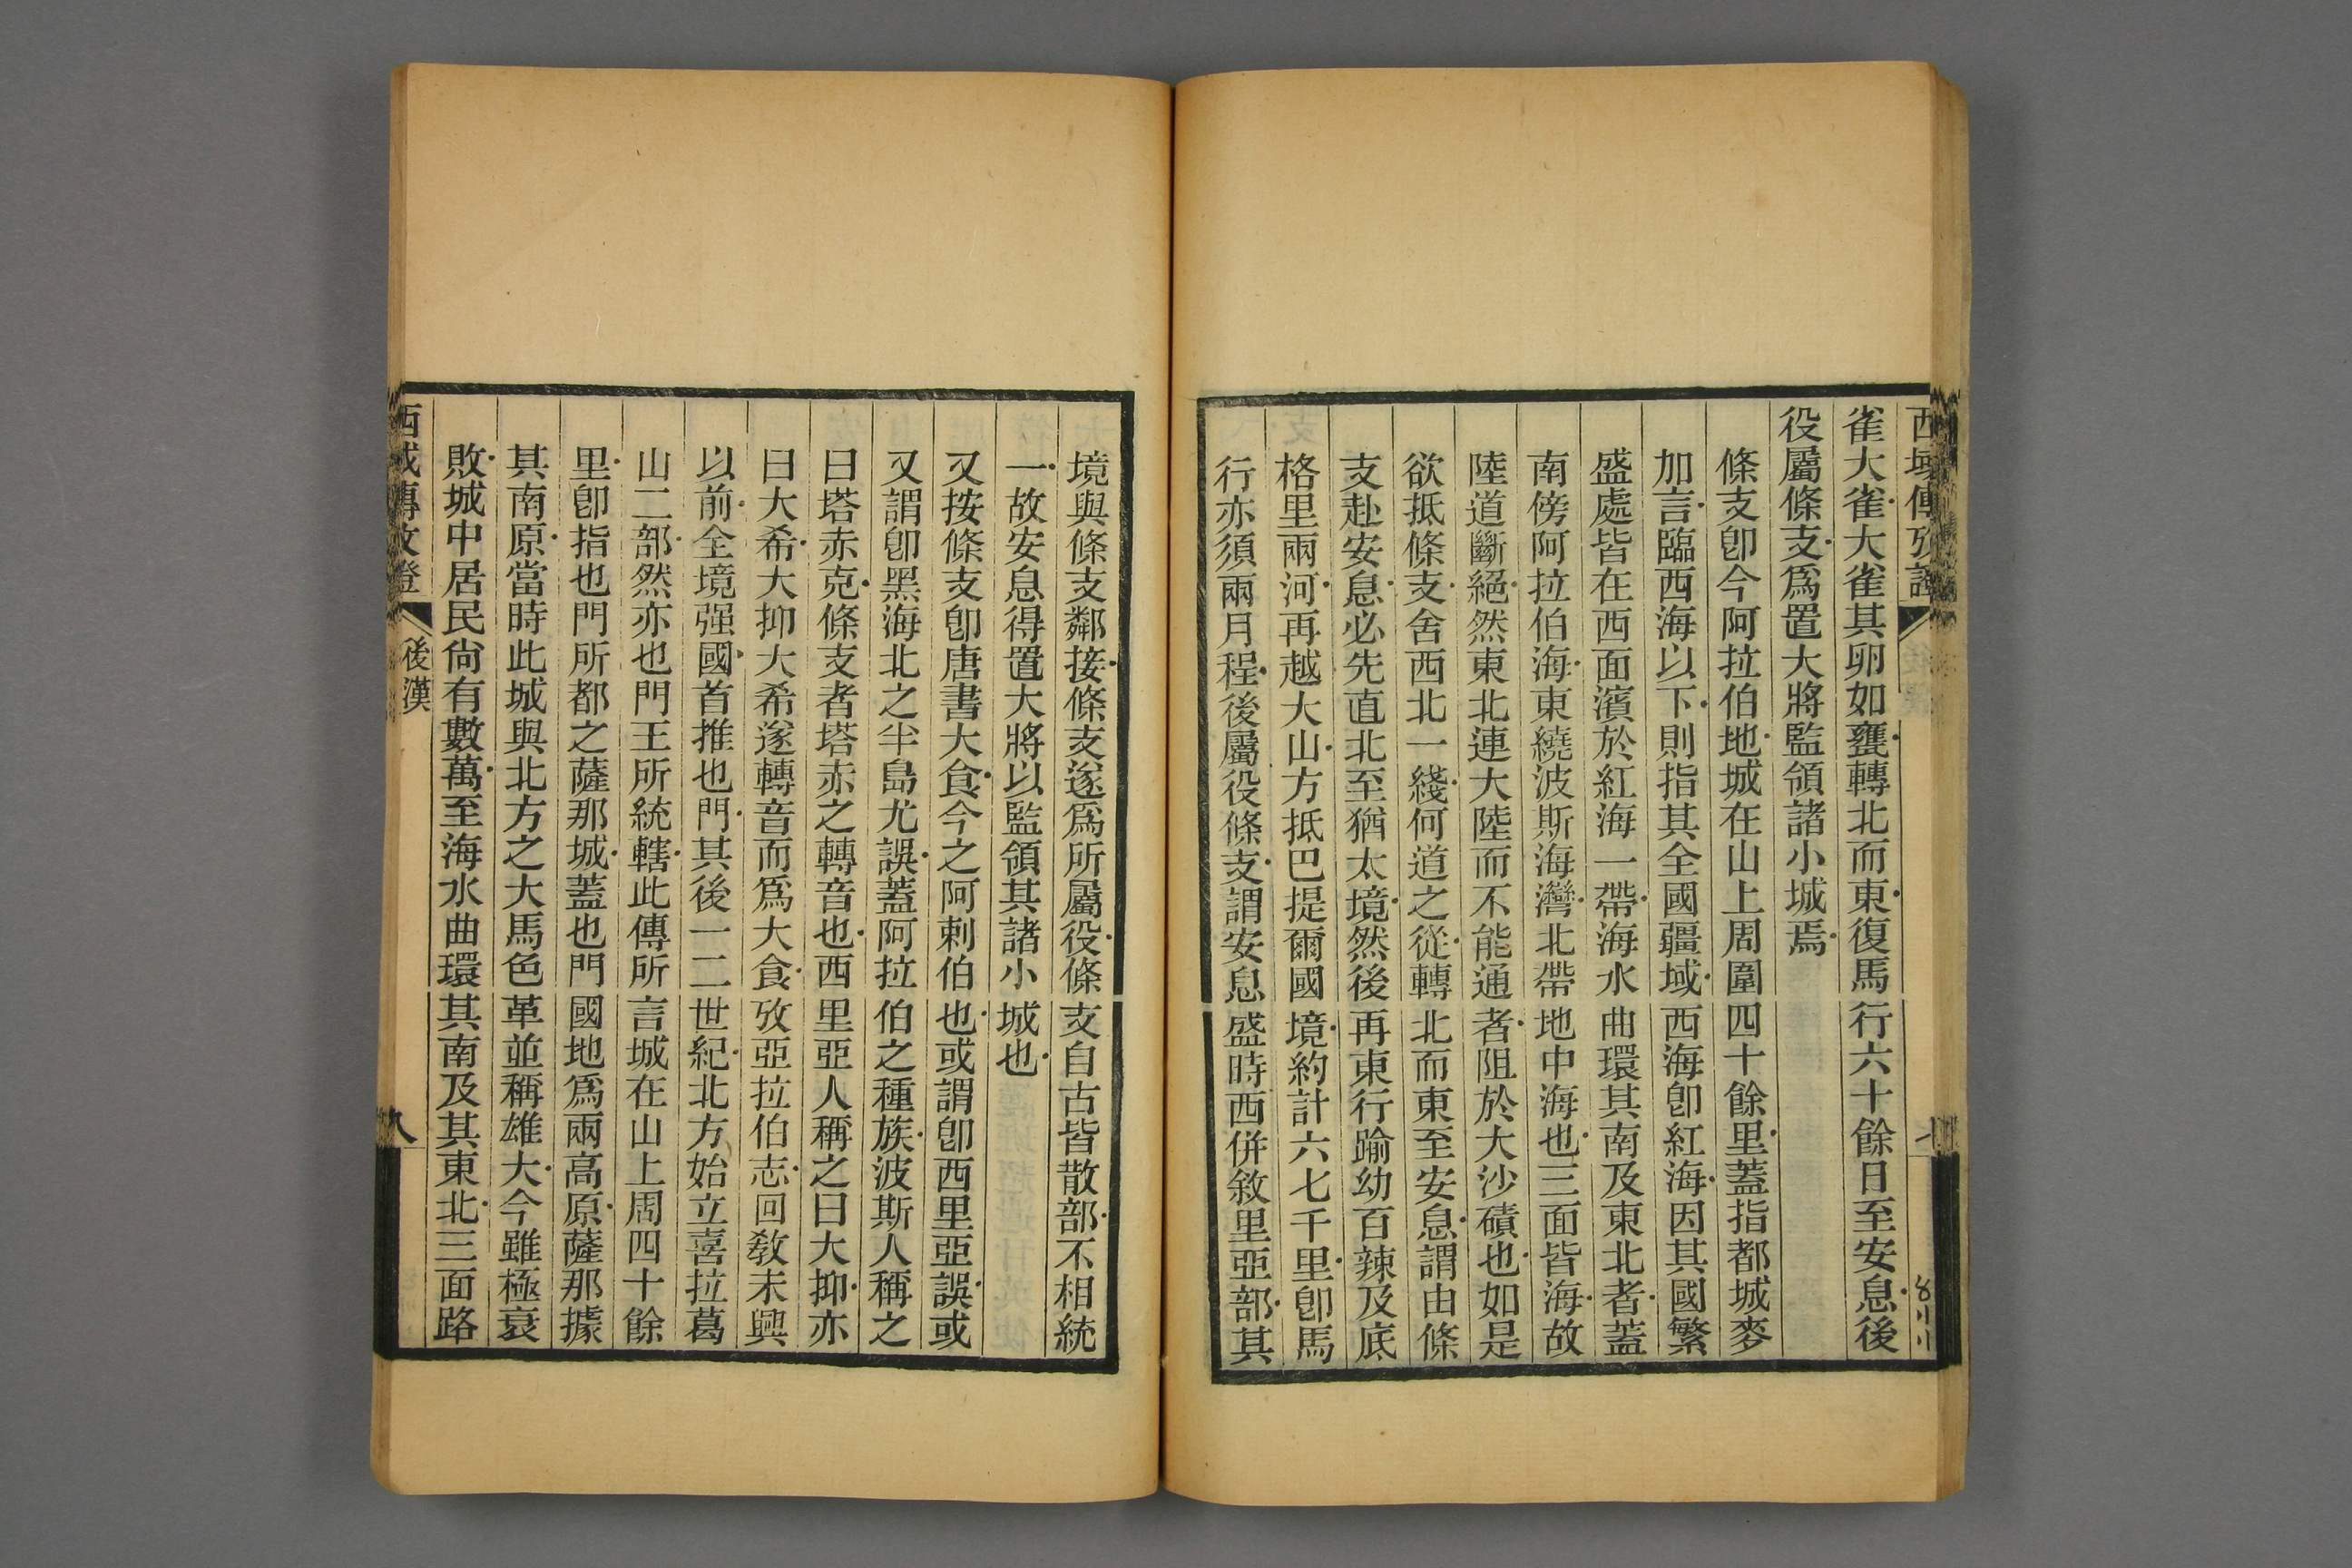 西域傳攷證
雀大雀大雀其卵如甕轉北而東復馬行六十餘日至安息後
役屬條支爲置大將監領諸小城焉
條支卽今阿拉伯地城在山上周圍四十餘里蓋指都城麥
加言臨西海以下則指其全國疆域西海卽紅海因其國繁
盛處皆在西面濱於紅海一帶海水曲環其南及東北者蓋
南傍阿拉伯海東繞波斯海灣北帶地中海也三面皆海故
陸道斷絕然東北連大陸而不能通者阻於大沙磧也如是
欲抵條支舍西北一綫何道之從轉北而東至安息謂由條
支赴安息必先直北至猶太境然後再東行踰幼百辣及底
格里兩河再越大山方抵巴提爾國境約計六七千里卽馬
行亦須兩月程後屬役條支謂安息盛時西併敘里亞部其
境與條支鄰接條支遂爲所屬役條支自古皆散部不相統
一故安息得置大將以監領其諸小城也
又按條支卽唐書大食今之阿剌伯也或謂卽西里亞誤或
又謂卽黑海北之半島尤誤蓋阿拉伯之種族波斯人稱之
曰塔赤克條支者塔赤之轉音也西里亞人稱之曰大抑亦
曰大希大抑大希遂轉音而爲大食攷亞拉伯志回敎未興
以前全境强國首推也門其後一二世紀北方始立喜拉葛
山二部然亦也門王所統轄此傳所言城在山上周四十餘
里卽指也門所都之薩那城蓋也門國地爲兩高原薩那據
其南原當時此城與北方之大馬色革並稱雄大今雖極衰
敗城中居民尙有數萬至海水曲環其南及其東北三面路
西域傳攷證
後漢
八